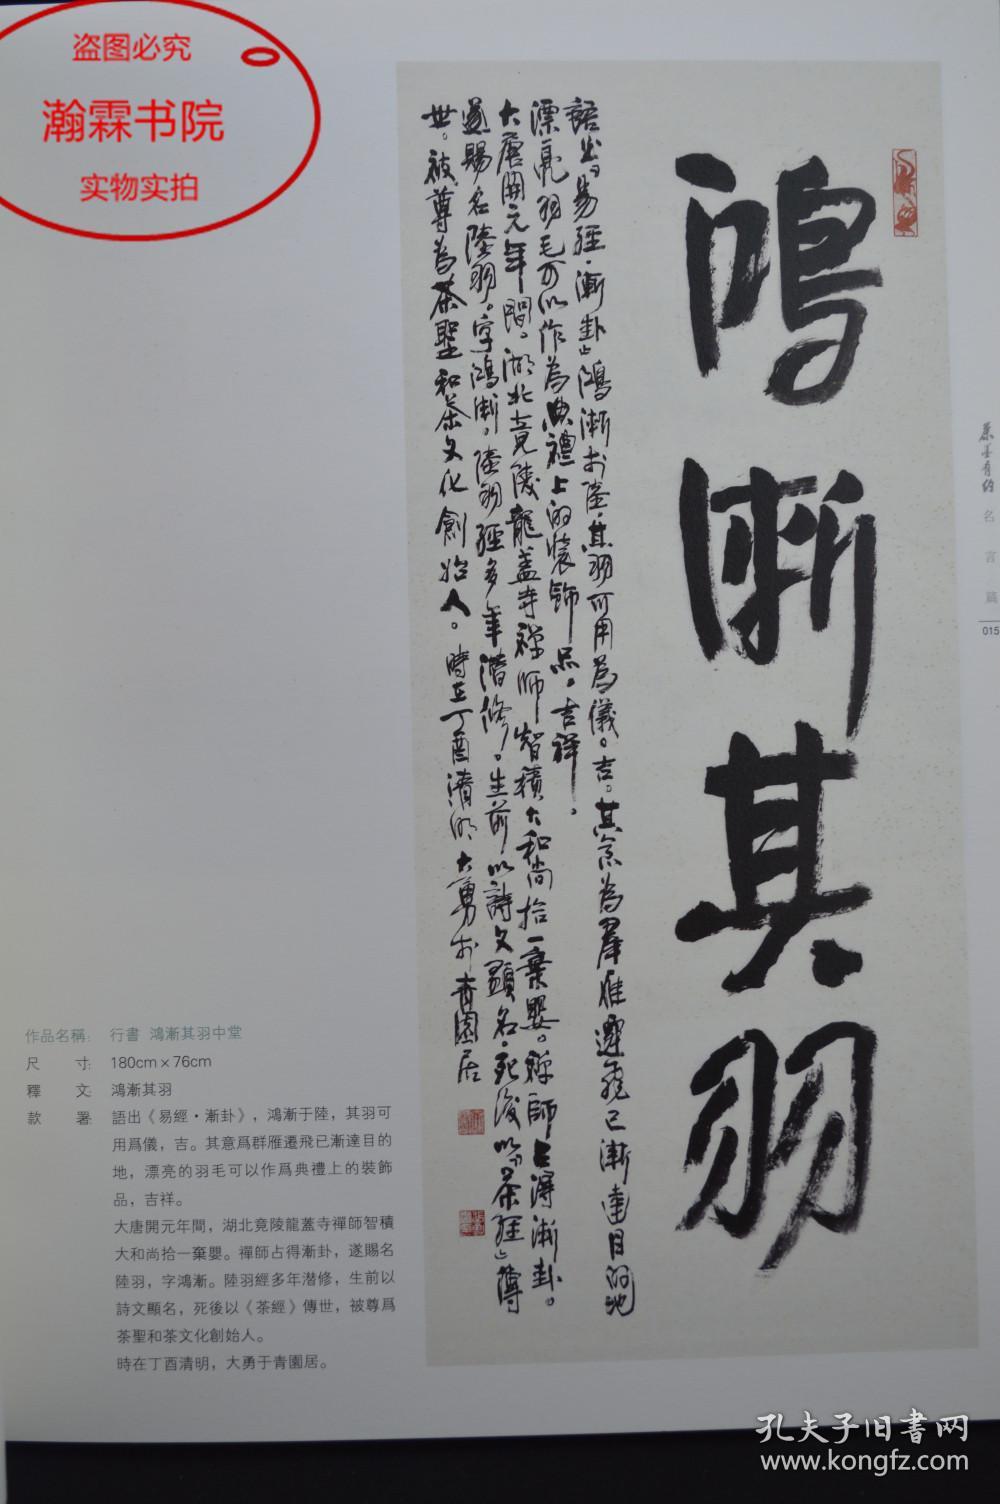 盗图必究
瀚霖书院
实物实拍
鴻漸其羽
語出《易經·漸卦》鴻漸于陸，其羽可用為儀。吉。其意為羣雁遷飛已漸達目的地
漂亮羽毛可以作為典禮上的裝飾品。吉祥。
大唐開元年間。湖北竟陵龍蓋寺禪師智積大和尚拾一棄嬰。禪師占得漸卦。
遂賜名陸羽。字鴻漸。陸羽經多年潛修。生前以詩文顯名，死後以《茶經》傳
世。被尊為茶聖和茶文化創始人。時在丁酉清明大勇於青園居
茶墨有約 名言篇
015
作品名稱: 行書 鴻漸其羽中堂
尺 寸: 180cm×76cm
釋 文: 鴻漸其羽
款 署: 語出《易經·漸卦》，鴻漸于陸，其羽可
用爲儀，吉。其意爲群雁遷飛已漸達目的
地，漂亮的羽毛可以作爲典禮上的裝飾
品，吉祥。
大唐開元年間，湖北竟陵龍蓋寺禪師智積
大和尚拾一棄嬰。禪師占得漸卦，遂賜名
陸羽，字鴻漸。陸羽經多年潜修，生前以
詩文顯名，死後以《茶經》傳世，被尊爲
茶聖和茶文化創始人。
時在丁酉清明，大勇于青園居。
孔夫子旧书网
www.kongfz.com